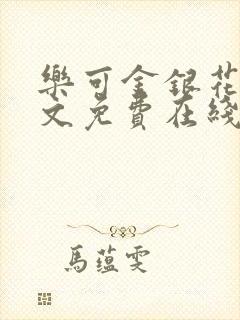 樂可金銀花
文免費在綫
馬蘊雯